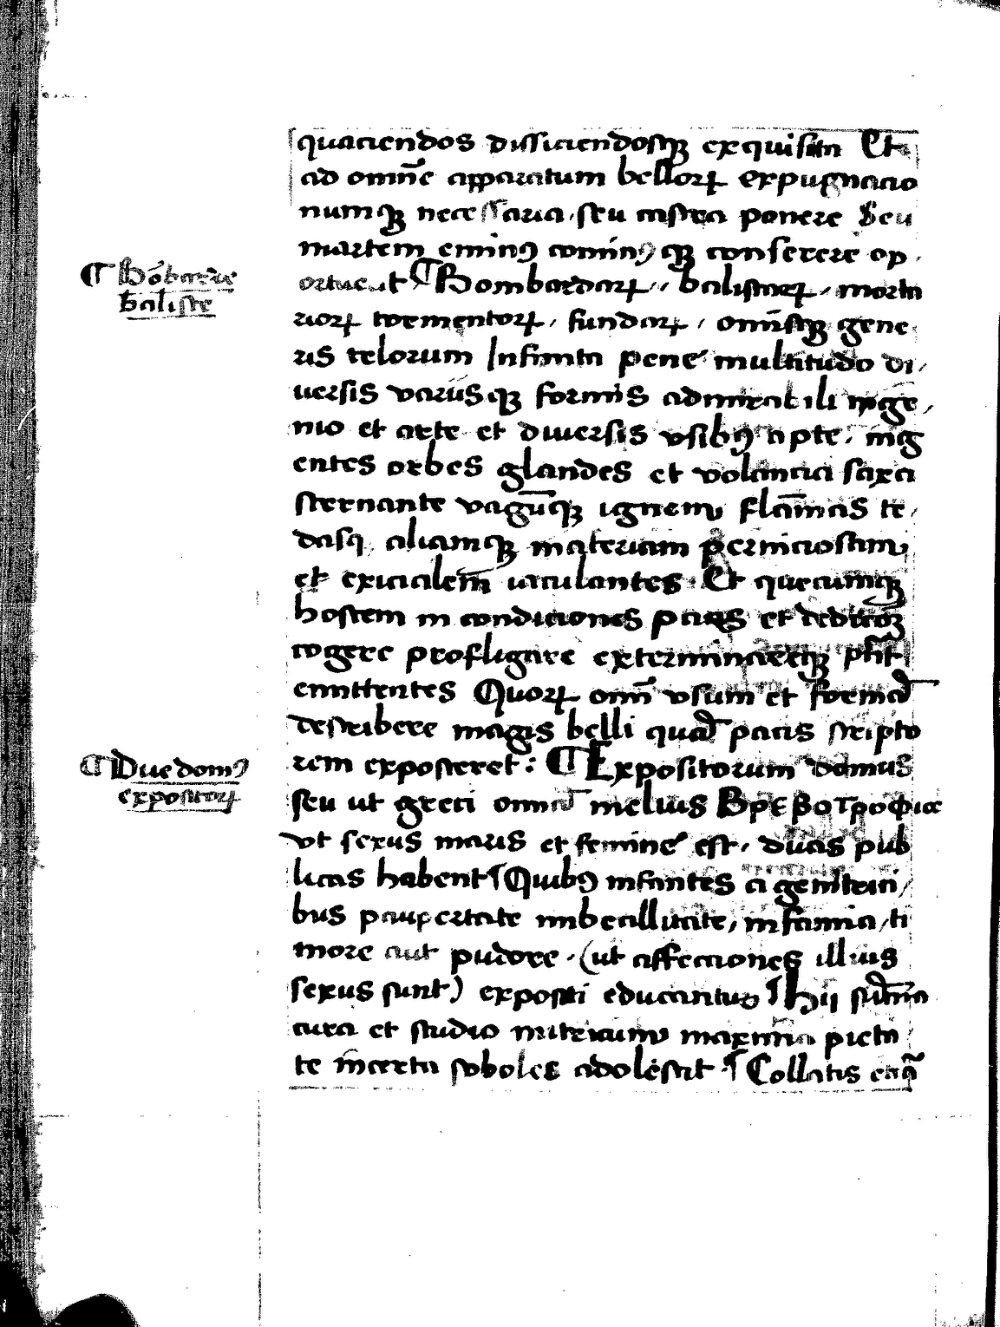 quaciendos dissiciendosqꝫ exquisita Et
ad omn̄e apparatum bellorꝝ expugnacio
numqꝫ necessaria, seu castra ponere Seu
martem eminꝰ cominꝰqꝫ conserere op,
ortueꝛit ¶ Bombardarꝝ, balistarꝝ, morta
¶ Bōbarde
baliste
riorꝝ tormentorꝝ, fundarꝝ, omniū̄qꝫ gene
ris telorum Infinita pene multitudo di,
uersis variisqꝫ formis admirabili inge,
nio et arte et diuersis vsibꝰ apte, ing
entes orbes glandes et volancia saxa
sternante vagūqꝫ ignem flām̄as te,
dasqꝫ, aliamqꝫ materiam perniciosam
et exicialem̄ iaculantes. Et quecumqꝫ
hostem in condiciones pacis et dedicōꝫ
cogere profligare exterminareqꝫ pn̄t
emittentes Quorꝝ omn̄ vsum et formā
describere magis belli quā pacis scripto
rem exposceret: ¶ Expositorum domus
¶ Due domꝰ
expositorꝝ
seu ut greci omnia melius Βρεβοτροφια
vt sexus maris et femine est, duas pub
licas habent ¶ Quibꝰ infantes a genitori,
bus paupertate imbecillitate, infamia, ti
more aut pudore, (ut affectiones illius
sexus sunt) expositi educantur ¶ Hii sum̄a
cura et studio nutricum maxima pieta
te incerta soboles adolescit. ¶ Collatis